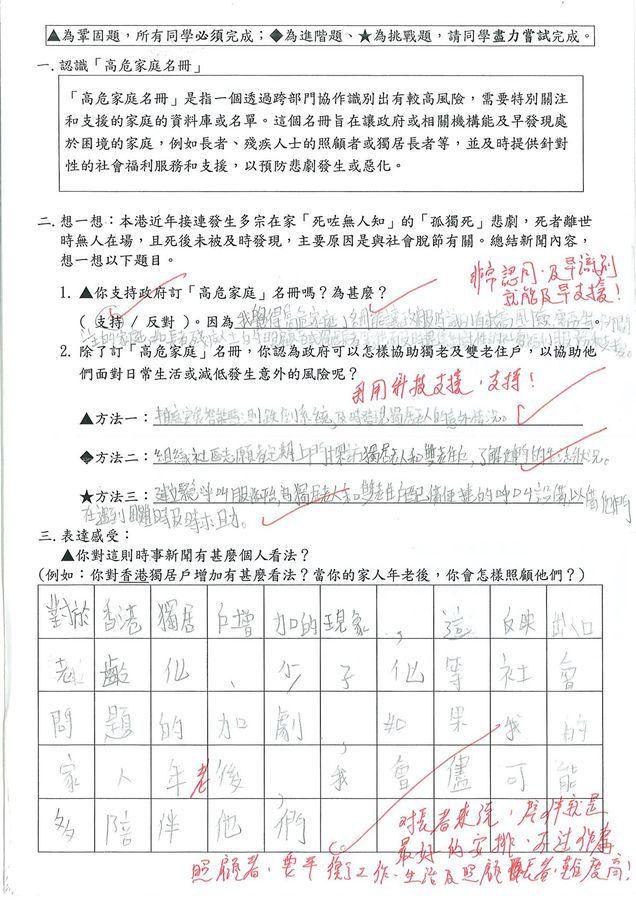 ▲為鞏固題，所有同學必須完成；◆為進階題、★為挑戰題，請同學盡力嘗試完成。
一. 認識「高危家庭名冊」
「高危家庭名冊」是指一個透過跨部門協作識別出有較高風險，需要特別關注
和支援的家庭的資料庫或名單。這個名冊旨在讓政府或相關機構能及早發現處
於困境的家庭，例如長者、殘疾人士的照顧者或獨居長者等，並及時提供針對
性的社會福利服務和支援，以預防悲劇發生或惡化。
二. 想一想：本港近年接連發生多宗在家「死咗無人知」的「孤獨死」悲劇，死者離世
時無人在場，且死後未被及時發現，主要原因是與社會脫節有關。總結新聞內容，
想一想以下題目。
非常認同，及早識別
就能及早支援！
1. ▲你支持政府訂「高危家庭」名冊嗎？為甚麼？
( 支持 / 反對 )。因為我覺得高危家庭名冊能讓政府
2. 除了訂「高危家庭」名冊，你認為政府可以怎樣協助獨老及雙老住戶，以協助他
們面對日常生活或減低發生意外的風險呢？
利用科技支援，支持！
▲方法一：系統，及時發現獨居老人的意外情況。
◆方法二：組織社區志願者定期上門探訪獨居老人和雙老住戶，了解他們的生活狀況。
★方法三：建立緊急呼叫服務，為獨居老人和雙老住戶配備便捷的呼叫設備，以備他們
在遇到困難時及時求助。
三. 表達感受：
▲你對這則時事新聞有甚麼個人看法？
(例如：你對香港獨居戶增加有甚麼看法？當你的家人年老後，你會怎樣照顧他們？)
對於香港獨居戶增加的現象，這反映出人口
老齡化、少子化等社會
問題的加劇，如果我的
家人年老後，我會儘可能
多陪伴他們。
对長者來說，陪伴就是
最好的安排，不过作為
照顧者，要平衡工作、生活及照顧長者，難度高！